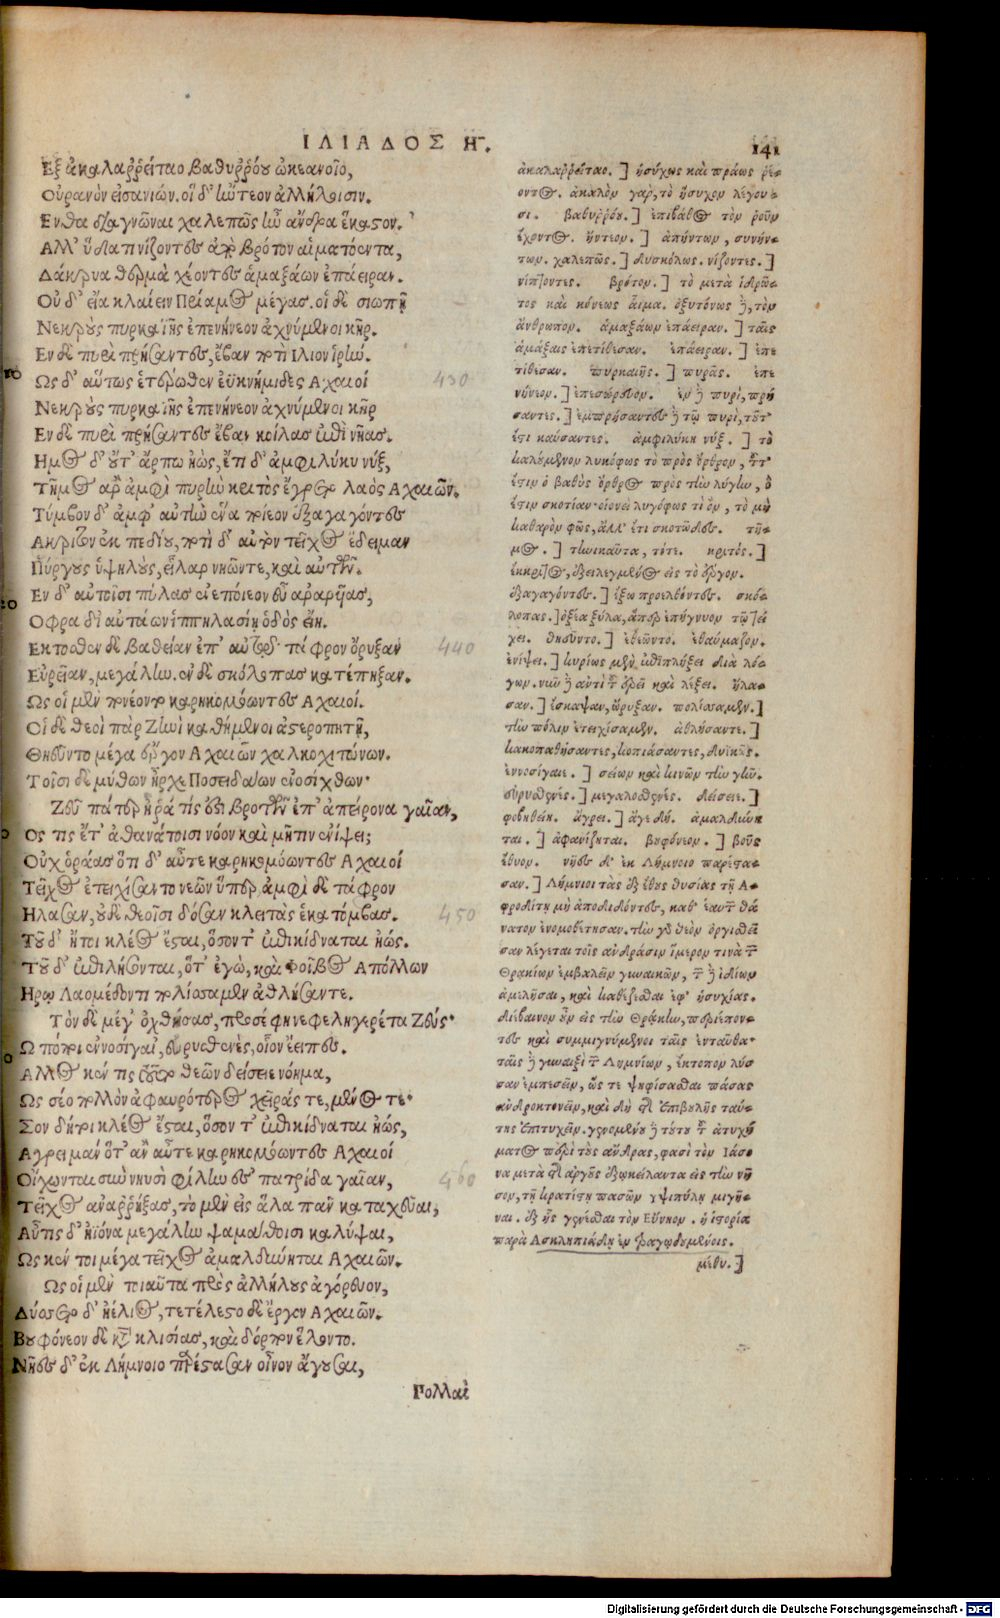 ΙΛΙΑΔΟΣ Η.
141
Εξ ἀκαλαῤῥείταο βαθυῤῥόου ὠκεανοῖο,
Οὐρανὸν εἰσανιών. οἱ δ' ἤντεον ἀλλήλοισιν.
Ενθα διαγνῶναι χαλεπῶς ἦν ἄνδρα ἕκαστον.
Αλλ' ὕδατι νίζοντες ἄπο βρότον αἱματόεντα,
Δάκρυα θερμὰ χέοντες ἁμαξάων ἐπάειραν.
Οὐ δ' εἴα κλαίειν Πρίαμος μέγας. οἱ δὲ σιωπῇ
Νεκροὺς πυρκαϊῆς ἐπενήνεον ἀχνύμενοι κῆρ.
Εν δὲ πυρὶ πρήσαντες, ἔβαν προτὶ Ιλιον ἱρήν.
10
Ως δ' αὔτως ἑτέρωθεν ἐϋκνήμιδες Αχαιοί
430
Νεκροὺς πυρκαϊῆς ἐπενήνεον ἀχνύμενοι κῆρ
Εν δὲ πυρὶ πρήσαντες ἔβαν κοίλας ἐπὶ νῆας.
Ημος δ' οὔτ' ἄρ πω ἠὼς, ἔτι δ' ἀμφιλύκη νύξ,
Τῆμος ἄρ' ἀμφὶ πυρὴν κριτὸς ἔγρετο λαὸς Αχαιῶν.
Τύμβον δ' ἀμφ' αὐτὴν ἕνα ποίεον ἐξαγαγόντες
Ακριτον ἐκ πεδίου, ποτὶ δ' αὐτὸν τεῖχος ἔδειμαν
Πύργους ὑψηλοὺς, εἶλαρ νηῶν τε, καὶ αὐτῶν.
20
Εν δ' αὐτοῖσι πύλας ἐνεποίεον εὖ ἀραρῄας,
Οφρα δι' αὐτάων ἱππηλασίη ὁδὸς εἴη.
Εκτοσθεν δὲ βαθεῖαν ἐπ' αὐτόφι τάφρον ὄρυξαν
440
Εὐρεῖαν, μεγάλην. ἐν δὲ σκόλοπας κατέπηξαν.
Ως οἱ μὲν πονέοντο καρηκομόωντες Αχαιοί.
Οἱ δὲ θεοὶ πὰρ Ζηνὶ καθήμενοι ἀστεροπητῇ,
Θηεῦντο μέγα ἔργον Αχαιῶν χαλκοχιτώνων.
Τοῖσι δὲ μύθων ἦρχε Ποσειδάων ἐνοσίχθων·
Ζεῦ πάτερ ἦ ῥά τίς ἐστι βροτῶν ἐπ' ἀπείρονα γαῖαν,
Ος τις ἔτ' ἀθανάτοισι νόον καὶ μῆτιν ἐνίψει;
Οὐχ ὁράας ὅτι δ' αὖτε καρηκομόωντες Αχαιοί
Τεῖχος ἐτειχίσαντο νεῶν ὕπερ, ἀμφὶ δὲ τάφρον
Ηλασαν, οὐδὲ θεοῖσι δόσαν κλειτὰς ἑκατόμβας.
450
Τοῦ δ' ἤτοι κλέος ἔσται, ὅσον τ' ἐπικίδναται ἠώς.
Τοῦ δ' ἐπιλήσονται, ὅτ' ἐγὼ, καὶ Φοῖβος Απόλλων
Ηρῳ Λαομέδοντι πολίσσαμεν ἀθλήσαντε.
Τὸν δὲ μέγ' ὀχθήσας, προσέφη νεφεληγερέτα Ζεύς·
Ω πόποι ἐννοσίγαι', εὐρυσθενὲς, οἷον ἔειπες.
Αλλος κέν τις τοῦτο θεῶν δείσειε νόημα,
Ως σέο πολλὸν ἀφαυρότερος χεῖράς τε, μένος τε·
Σὸν δήτοι κλέος ἔσται, ὅσον τ' ἐπικίδναται ἠώς,
Αγρει μὰν ὅτ' ἂν αὖτε καρηκομόωντες Αχαιοί
Οἴχωνται σὺν νηυσὶ φίλην ἐς πατρίδα γαῖαν,
460
Τεῖχος ἀναῤῥήξας, τὸ μὲν εἰς ἅλα πᾶν καταχεῦαι,
Αὖτις δ' ἠϊόνα μεγάλην ψαμάθοισι καλύψαι,
Ως κέν τοι μέγα τεῖχος ἀμαλδύνηται Αχαιῶν.
Ως οἱ μὲν τοιαῦτα πρὸς ἀλλήλους ἀγόρευον,
Δύσετο δ' ἠέλιος, τετέλεστο δὲ ἔργον Αχαιῶν.
Βουφόνεον δὲ κατὰ κλισίας, καὶ δόρπον ἕλοντο.
Νῆες δ' ἐκ Λήμνοιο παρέστασαν οἶνον ἄγουσαι,
Πολλαὶ
ἀκαλαῤῥείταο.] ἡσύχως καὶ πράως ῥέ-
οντος. ἀκαλὸν γὰρ, τὸ ἥσυχον λέγου-
σι. βαθυῤῥόου.] ἐπιβάθος τὸν ῥοῦν
ἔχοντος. ἤντεον.] ἀπήντων, συνήν-
των. χαλεπῶς.] δυσκόλως. νίζοντες.]
νίπτοντες. βρότον.] τὸ μετὰ ἱδρῶ-
τος καὶ κόνεως αἷμα. ὀξυτόνως δὲ, τὸν
ἄνθρωπον. ἁμαξάων ἐπάειραν.] ταῖς
ἁμάξαις ἐπετίθεσαν. ἐπάειραν.] ἐπε
τίθεσαν. πυρκαιῆς.] πυρᾶς. ἐπε
νήνεον.] ἐπεσώρευον. ἐν δὲ πυρὶ, πρή
σαντες.] ἐμπρήσαντες δὲ τῷ πυρὶ, τοῦτ'
ἔτι καύσαντες. ἀμφιλύκη νύξ.] τὸ
καλούμενον λυκόφως τὸ πρὸς ὄρθρον, τοῦτ'
ἔστιν ὁ βαθὺς ὄρθρος πρὸς τὴν λύγην, ὅ
ἔστιν σκοτίαν· οἱονεὶ λυγόφως τὶ ὂν, τὸ μὴ
καθαρὸν φῶς, ἀλλ' ἔτι σκοτῶδες. τῆ-
μος.] τηνικαῦτα, τότε. κριτός.]
ἔκκριτος, ἐξειλεγμένος εἰς τὸ ἔργον.
ἐξαγαγόντες.] ἔξω προελθόντες. σκό-
λοπας.] ὀξέα ξύλα, ἅπερ ἐπήγνυον τῷ τεί
χει. θηεῦντο.] ἐθεῶντο. ἐθαύμαζον.
ἐνίψει.] κυρίως μὲν ἐπιπλήξει διὰ λό-
γων. νῦν δὲ ἀντὶ τοῦ ἐρεῖ καὶ λέξει. ἤλα-
σαν.] ἔσκαψαν, ὤρυξαν. πολίσσαμεν.]
τὴν πόλιν ἐτειχίσαμεν. ἀθλήσαντε.]
κακοπαθήσαντες, κοπιάσαντες, δυϊκῶς.
ἐννοσίγαιε.] σείων καὶ κινῶν τὴν γῆν.
εὐρυσθενές.] μεγαλοσθενές. δείσειε.]
φοβηθείη. ἄγρει.] ἄγε δή. ἀμαλδύνη
ται.] ἀφανίζηται. βουφόνεον.] βοῦς
ἔθυον. νῆες δ' ἐκ Λήμνοιο παρέστα-
σαν.] Λήμνιοι τὰς ἐξ ἔθους θυσίας τῇ Α-
φροδίτῃ μὴ ἀποδιδόντες, καθ' ἑαυτῶν θά
νατον ἐνομοθέτησαν. τὴν γὰρ θεὸν ὀργισθεῖ
σαν λέγεται τοῖς ἀνδράσιν ἵμερον τινὰ τῶν
Θρᾳκίων ἐμβαλεῖν γυναικῶν, τῶν δὲ ἰδίων
ἀμελῆσαι, καὶ καθέζεσθαι ἐφ' ἡσυχίας.
διέβαινον οὖν εἰς τὴν Θρᾴκην, περιέπον-
τες καὶ συμμιγνύμενοι ταῖς ἐνταῦθα·
ταῖς δὲ γυναιξὶ τῶν Λημνίων, ἔκτοπον λύσ
σαν ἐμπεσεῖν, ὥς τε ψηφίσασθαι πάσας
ἀνδροκτονεῖν, καὶ δὴ τῆς ἐπιβουλῆς ταύ-
της ἐπιτυχεῖν. γενομένου δὲ τούτου τοῦ ἀτυχή
ματος περὶ τοὺς ἄνδρας, φασὶ τὸν Ιάσο
να μετὰ τῆς ἀργοῦς ἐξωκείλαντα εἰς τὴν νῆ
σον, τῇ κρατίστῃ πασῶν ὑψιπύλῃ μιγῆ-
ναι. ἐξ ἧς γενέσθαι τὸν Εὔνηον. ἡ ἱστορία
παρὰ Ασκληπιάδῃ ἐν τραγῳδουμένοις.
μέθυ.]
Digitalisierung gefördert durch die Deutsche Forschungsgemeinschaft - DFG